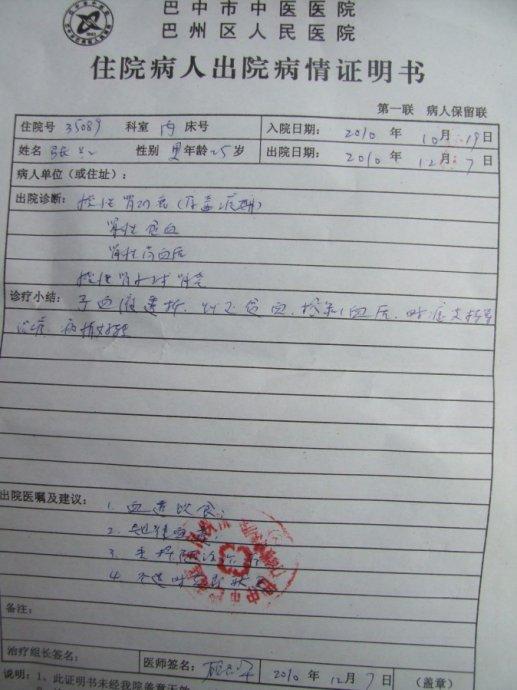 巴中市中医医院
巴州区人民医院
住院病人出院病情证明书
第一联 病人保留联
住院号 35089 科室 内 床号 入院日期: 2010 年 10 月 19 日
姓名 张 性别 男 年龄 25 岁 出院日期: 2010 年 12 月 7 日
病人单位(或住址):
出院诊断: 慢性肾功衰(尿毒症期)
肾性贫血
肾性高血压
慢性肾小球肾炎
诊疗小结: 予血液透析、纠正贫血、控制血压、对症支持等
治疗,病情好转
出院医嘱及建议: 1. 血透饮食;
2.
3. 门诊随访
4. 不适时
备注:
治疗组长签名: 医师签名: 2010 年 12 月 7 日 (盖章)
说明: 1、此证明书未经我院盖章无效